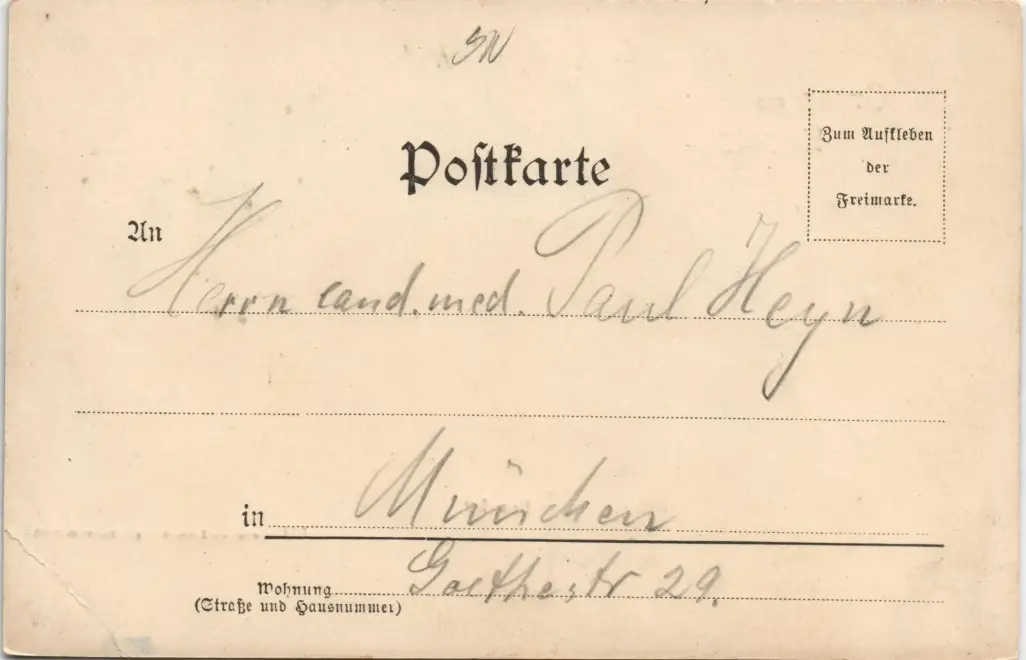 Postkarte
Zum Aufkleben
der
Freimarke.
An
Herrn cand. med. Paul Heyn
in München
Wohnung Goethestr 29.
(Straße und Hausnummer)